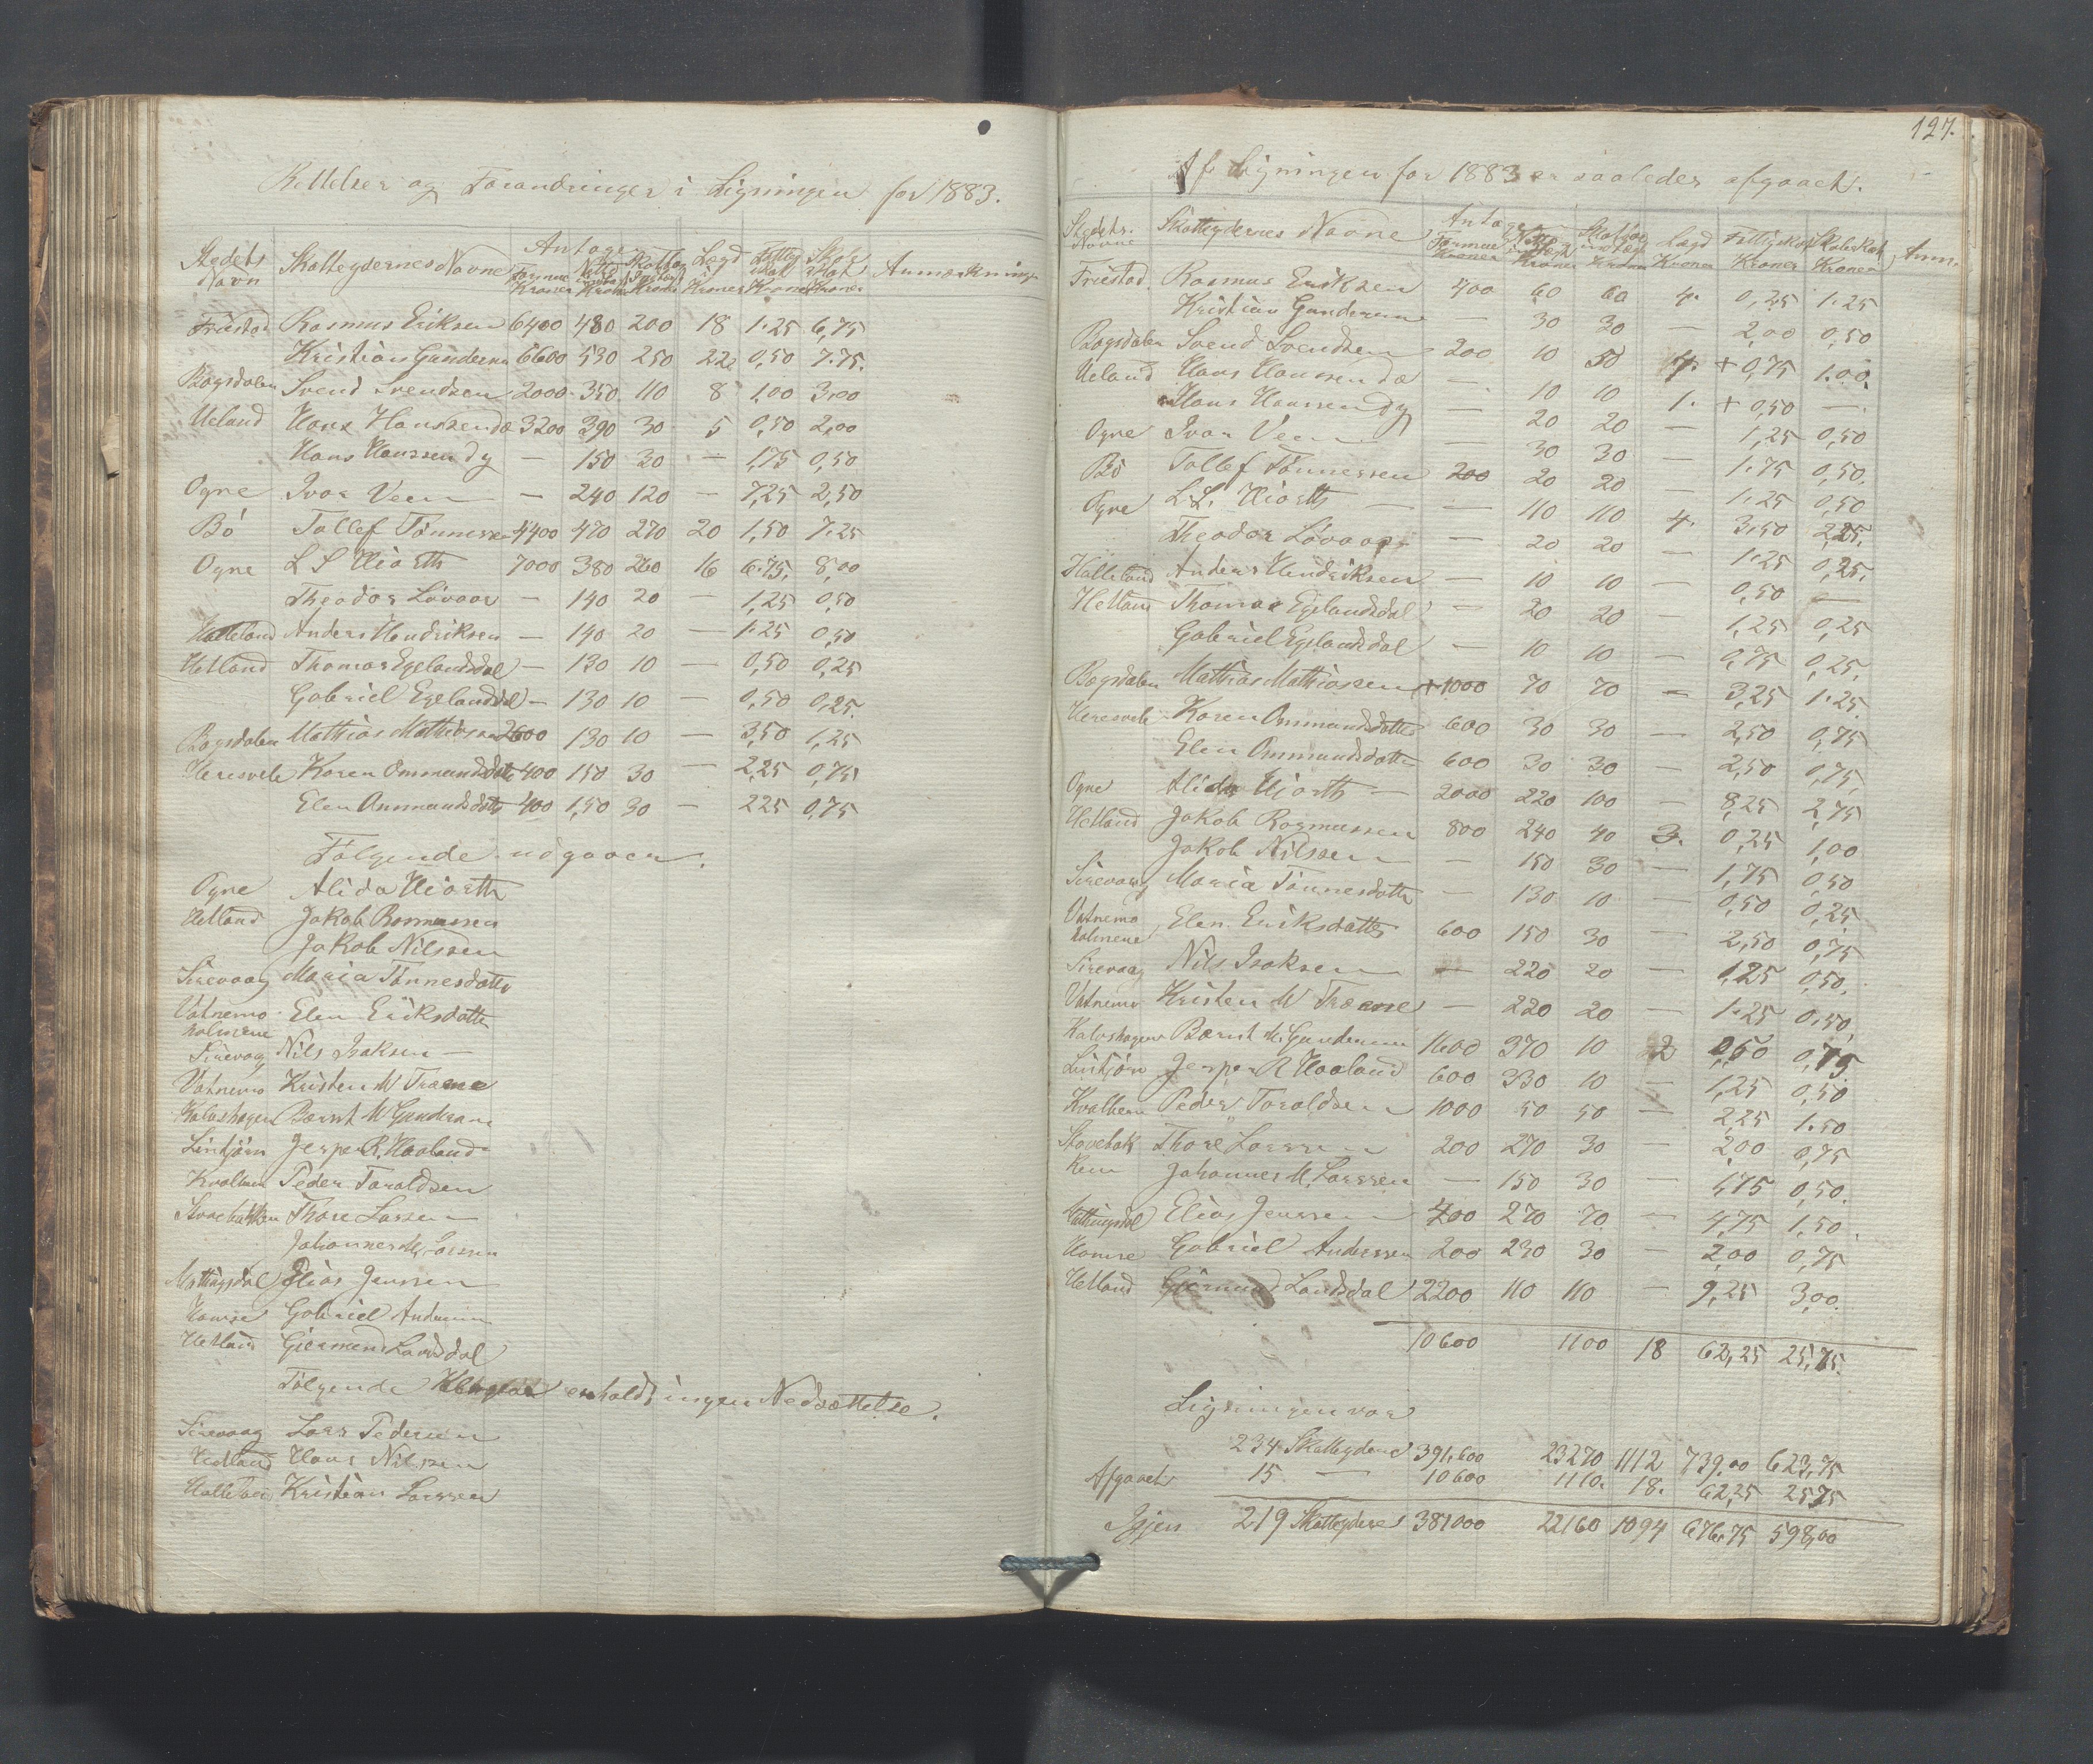 Rettelser og Forandringer i Ligningen for 1883.
Stedets Navn Skatteydernes Navne Antagen Formue Kroner Netto Indtægt Kroner Skatbar Indtægt Kroner Lægd Kroner Fattig skat Kroner Skole skat Kroner Anmærkninger
Friestad Rasmus Eriksen 6400 480 200 18 1.25 6,75
Kristian Gundersen 6600 530 250 22 0,50 7.75.
Bogsdalen Svend Svendsen 2000 350 110 8 1,00 3,00
Ueland Hans Hanssen dæ 3200 390 30 5 0,50 2,00
Hans Hanssen dy — 150 30 — 1,75 0,50
Ogne Ivar Veen — 240 120 — 7,25 2,50
Bö Tollef Tönnessen 4400 470 270 20 1,50 7.25
Ogne L S Hiorth 7000 380 260 16 6.75. 8,00
Theodor Lövaas — 140 20 — 1,25 0,50
Halleland Anders Hendriksen — 140 20 — 1.25 0,50
Hetland Thomas Egelandsdal — 130 10 — 0,50 0,25
Gabriel Egelandsdal — 130 10 — 0,50 0,25.
Bogsdalen Mathias Mathiassen 2600 130 10 — 3,50 1,25
Heresvele Karen Ommundsdatter 400 150 30 — 2,25 0,75
Elen Ommundsdatter 400 1,50 30 — 225 0,75
Følgende udgaaer.
Ogne Alida Hiorth
Hetland Jakob Rasmussen
Jakob Nilssen
Sirevaag Maria Tönnesdatter
Vatnemo holmene Elen Eriksdatter
Sirevaag Nils Isaksen —
Vatnemo Kristen M Tranne
Kalvshagen Bærnt M Gundersen
Lintjörn Jesper R. Haaland
Kvalbein Peder Taraldsen
Stavebakken Thore Larssen
Johannes M. Larssen
Mattingsdal Elias Jenssen
Homse Gabriel Anderssen
Hetland Giermund Landsdal
Følgende Klager erholdt ingen Nedsættelse.
Sirevaag Lars Pedersen
Hetland Hans Nilssen
Halleland Kristian Larssen
127.
Af Ligningen for 1883 er saaledes afgaaet.
Stedets Navne Skatteydernes Navne Antagen Formue Kroner Netto Indtægt Kroner Skatbar Indtægt Kroner Lægd Kroner Fattigskat Kroner Skoleskat Kroner Anm.
Friestad Rasmus Eriksen 400 60 60 4. 0,25 1.25
Kristian Gundersen — 30 30 — 2,00 0,50
Bogsdalen Svend Svendsen 200 10 50 4. + 0,75 1.00.
Ueland Hans Hanssen dæ — 10 10 1. + 0,50 —.
Hans Hanssen dy — 20 20 — 1,25 0,50
Ogne Ivar Veen — 30 30 — 1.75 0,50.
Bö Tollef Tönnessen 200 20 20 — 1.25 0,50
Ogne L. S. Hiorth — — 110 110 4. 3.50 2,25.
Theodor Lövaas — 20 20 — 1.25 0,25.
Halleland Anders Hendriksen — 10 10 — 0,50 —
Hetland Thomas Egelandsdal — 20 20 — 1,25 0,25
Gabriel Egelandsdal — 10 10 — 0,75 0,25.
Bogsdalen Mathias Mathiassen + 1000 70 70 — 3,25 1.25.
Heresvele Karen Ommundsdatter 600 30 30 — 2,50 0,75
Elen Ommundsdatter 600 30 30 — 2,50 0,75,
Ogne Alida Hiorth — 2000 220 100 — 8,25 2,75
Hetland Jakob Rasmussen 800 240 40 3. 0,25 1,00
Jakob Nilssen — 150 30 — 1,75 0,50
Sirevaag Maria Tönnesdatter — 130 10 — 0,50 0,25.
Vatnemo holmene Elen Eriksdatter 600 150 30 — 2,50 0,75
Sirevaag Nils Isaksen — 220 20 — 1,25 0,50.
Vatnemo Kristen M Tranne — 220 20 — 1.25 0,50,
Kalvshagen Bærnt M. Gundersen 1600 370 10 2 0,50 0,75.
Lintjörn Jesper R Haaland 600 330 10 — 1,25 0,50
Kvalbein Peder Taraldsen 1000 50 50 — 2,25 1.50
Stavebak Thore Larssen 200 270 30 — 2,00 0,75
ken Johannes M. Larssen — 150 30 — 1,75 0,50.
Mattingsdal Elias Jenssen 400 270 70 — 4,75 1,50
Homse Gabriel Anderssen 200 230 30 — 2,00 0,75
Hetland Giermund Landsdal 2200 110 110 — 9,25 3,00.
10600 1100 18 62,25 25,75.
Ligningen var
234 Skatteydere 391,600 23270 1112 739,00 623,75
Afgaaet 15 — 10600 1110. 18. 62,25 25,75
Igjen 219 Skatteydere 381000 22160 1094 676,75 598,00